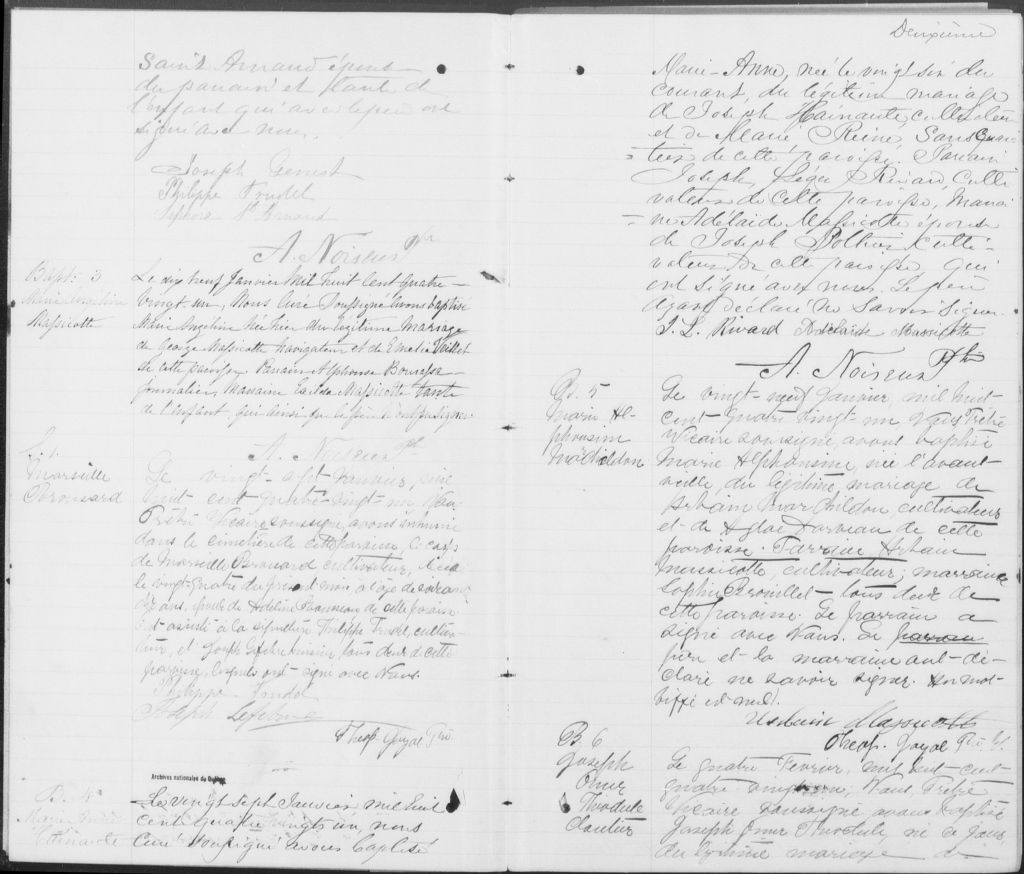 Saint Arnaud épouse
du parrain et tante de
l'enfant qui avec le père ont
signé avec nous.
Joseph Genest
Philippe Trudel
Sephora St Arnaud
A. Noiseux Ptre
Bapt: 3
Marie Angelina
Massicotte
Le dix neuf Janvier Mil huit Cent Quatre
vingt un, Nous Curé Soussigné avons baptisé
Marie Angelina Née hier du légitime Mariage
de George Massicotte Navigateur et de Emelie
de cette paroisse Parrain Alphonse Bourassa
Journalier, Marraine Massicotte tante
de l'enfant, qui ainsi que le père
A. Noiseux Ptr
S. 1.
Marseille
Brousard
Le vingt-sept Janvier, mil
huit cent quatre-vingt-un, Nous
Prêtre Vicaire soussigné, avons inhumé
dans le cimetière de cette paroisse, le corps
de Marseille cultivateur, décédé
le vingt-quatre du présent mois à l'âge de
dix ans, époux de Adeline de cette paroisse
Ont assisté à la sépulture Philippe Trudel, cultiva-
teur, et Joseph Lefebvre tous deux de cette
paroisse, lesquels ont signé avec Nous.
Philippe Trudel
Joseph Lefebvre
Theop. Joyal Ptre
Archives nationales du Québec
B. 4
Marie Anne
Hainaute
Le vingt sept Janvier mil huit
cent quatre vingts un, nous
Curé soussigné avons baptisé
Deuxième
Marie-Anne, née le vingt six du
courant, du légitime mariage
de Joseph Hainaute, cultivateur
et de Marie Reine Sansquar-
tier de cette paroisse. Parrain
Joseph Léger Rivard, culti
vateur de cette paroisse, Marrai
ne Adélaide Massicotte épouse
de Joseph culti-
vateur de cette paroisse qui
ont signé avec nous. Le père
ayant déclaré ne savoir signer.
J. L. Rivard Adelaide Massicotte
A. Noiseux Ptre
B. 5
Marie Al-
phonsine
Marchildon
Le vingt-neuf Janvier mil huit-
cent-quatre-vingt-un Nous Prêtre
Vicaire soussigné avons baptisé
Marie Alphonsine, née l'avant-
veille, du légitime mariage de
Urbain Marchildon, cultivateur
et de Aglae de cette
paroisse. Parrain Urbain
Massicotte, cultivateur; marraine
Sophie Brouillet - tous deux de
cette paroisse. Le parrain a
signé avec Nous. Le parrain
père et la marraine ont-dé-
claré ne savoir signer. Un mot
biffé est nul.
Urbain Massicotte
Theop. Joyal Ptre V.
B. 6
Joseph
Omer
Théodule
Cloutier
Le quatre Fevrier, mil huit-cent-
quatre vingt-un, Nous Prêtre
Vicaire soussigné avons baptisé
Joseph Omer Theodule, né ce jour,
du légitime mariage de